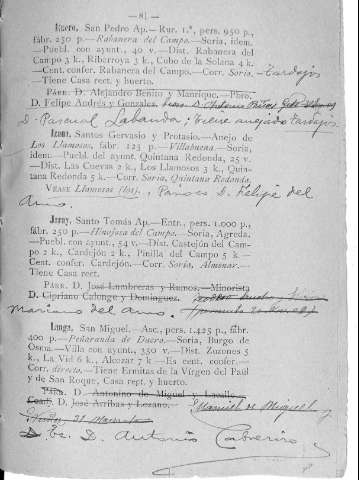 — 81 —
Ituero, San Pedro Ap.—Rur. 1.ª, pers. 950 p.,
fábr. 250 p.—Rabanera del Campo.—Soria, idem.
—Puebl. con ayunt., 40 v.—Dist. Rabanera del
Campo 3 k., Ribarroya 3 k., Cubo de la Solana 4 k.
—Cent. confer. Rabanera del Campo.—Corr. Soria.— Tardajos
—Tiene Casa rect. y huerto.
PÁRR. D. Alejandro Benito y Manrique.—Pbro.
D. Felipe Andrés y Gonzales.
D. Pascual Labanda; tiene anejado Tardajos
Izana, Santos Gervasio y Protasio.—Anejo de
Los Llamosos, fábr. 125 p.—Villabuena.—Soria,
idem.—Puebl. del ayunt. Quintana Redonda, 25 v.
—Dist. Las Cuevas 2 k., Los Llamosos 3 k., Quin-
tana Redonda 5 k.—Corr. Soria, Quintana Redonda.
VÉASE Llamosos (los). Párroco D. Felipe del
Amo.
Jaray, Santo Tomás Ap.—Entr., pers. 1.000 p.,
fábr. 250 p.—Hinojosa del Campo.—Soria, Agreda.
—Puebl. con ayunt., 54 v.—Dist. Castejón del Cam-
po 2 k., Cardejón 2 k., Pinilla del Campo 5 k.—
Cent. confer. Cardejón.—Corr. Soria, Almenar.—
Tiene Casa rect.
PÁRR. D. José Lumbreras y Ramos.—Minorista
D. Cipriano Calonge y Dominguez.
Mariano del Amo.
Langa, San Miguel.—Asc., pers. 1.425 p., fábr.
400 p.—Peñaranda de Duero.—Soria, Burgo de
Osma.—Villa con ayunt., 350 v.—Dist. Zuzones 5
k., La Vid 6 k., Alcozar 7 k.—Es cent. confer.—
Corr. directo.—Tiene Ermitas de la Vírgen del Paúl
y de San Roque, Casa rect. y huerto.
PÁRR. D. Antonino de Miguel y Lavalle.—
Coad. D. José Arribas y Lozano. Manuel de Miguel y
D. Ec. D. Antonio Cabrerizo